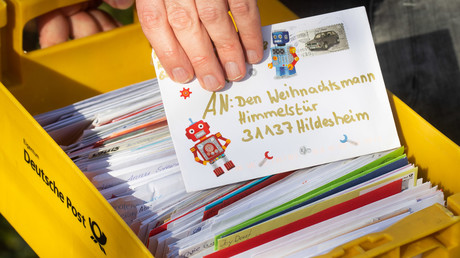 AN: Den Weihnachtsmann
Himmelstür
31137 Hildesheim
Deutsche Post